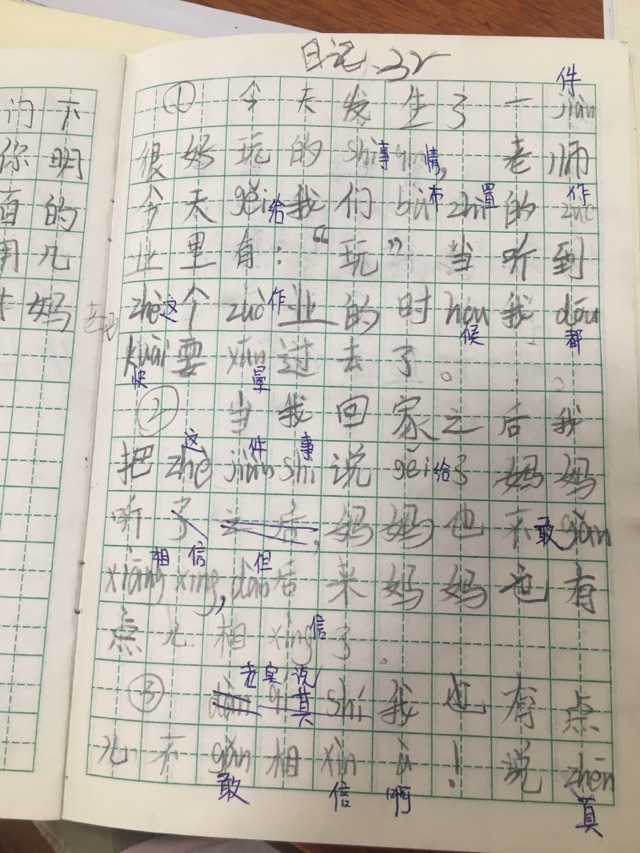 门不
你明
的
几
妈
日记
件
① 今天发生了一jiàn
很好玩的shì事qing情，老师
今天gěi给我们bù布zhì置的zuò作
业里有：“玩”当听到
zhè这个zuò作业的时hou候我dōu都
kuài快要xūn晕过去了。
② 当我回家之后我
把zhè这jiàn件shì事说gěi给了妈妈
听了之后，妈妈也不敢gǎn
xiāng相xìng信，dàn但后来妈妈也有
点儿相xìng信了。
老实说
③ shí我也有点
儿不gǎn敢相xìn信a啊！说zhēn真